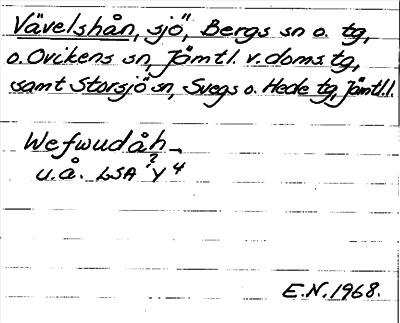 Vävelshån, sjö, Bergs sn o. tg,
o. Ovikens sn, Jämtl. v. doms tg,
samt Storsjö sn, Svegs o. Hede tg, Jämtl.l.
Wefwudåh
u.å. LSA ? Y 4
E.N. 1968.